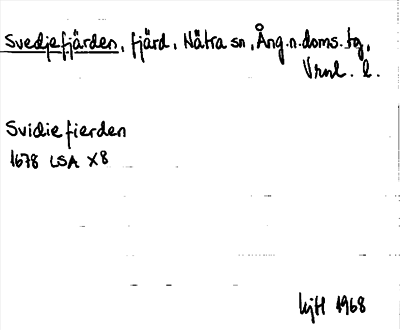 Svedjefjärden, fjärd, Nätra sn, Ång.n.doms.tg,
Vrnl. l.
Svidiefierden
1678 LSA X8
hjH 1968